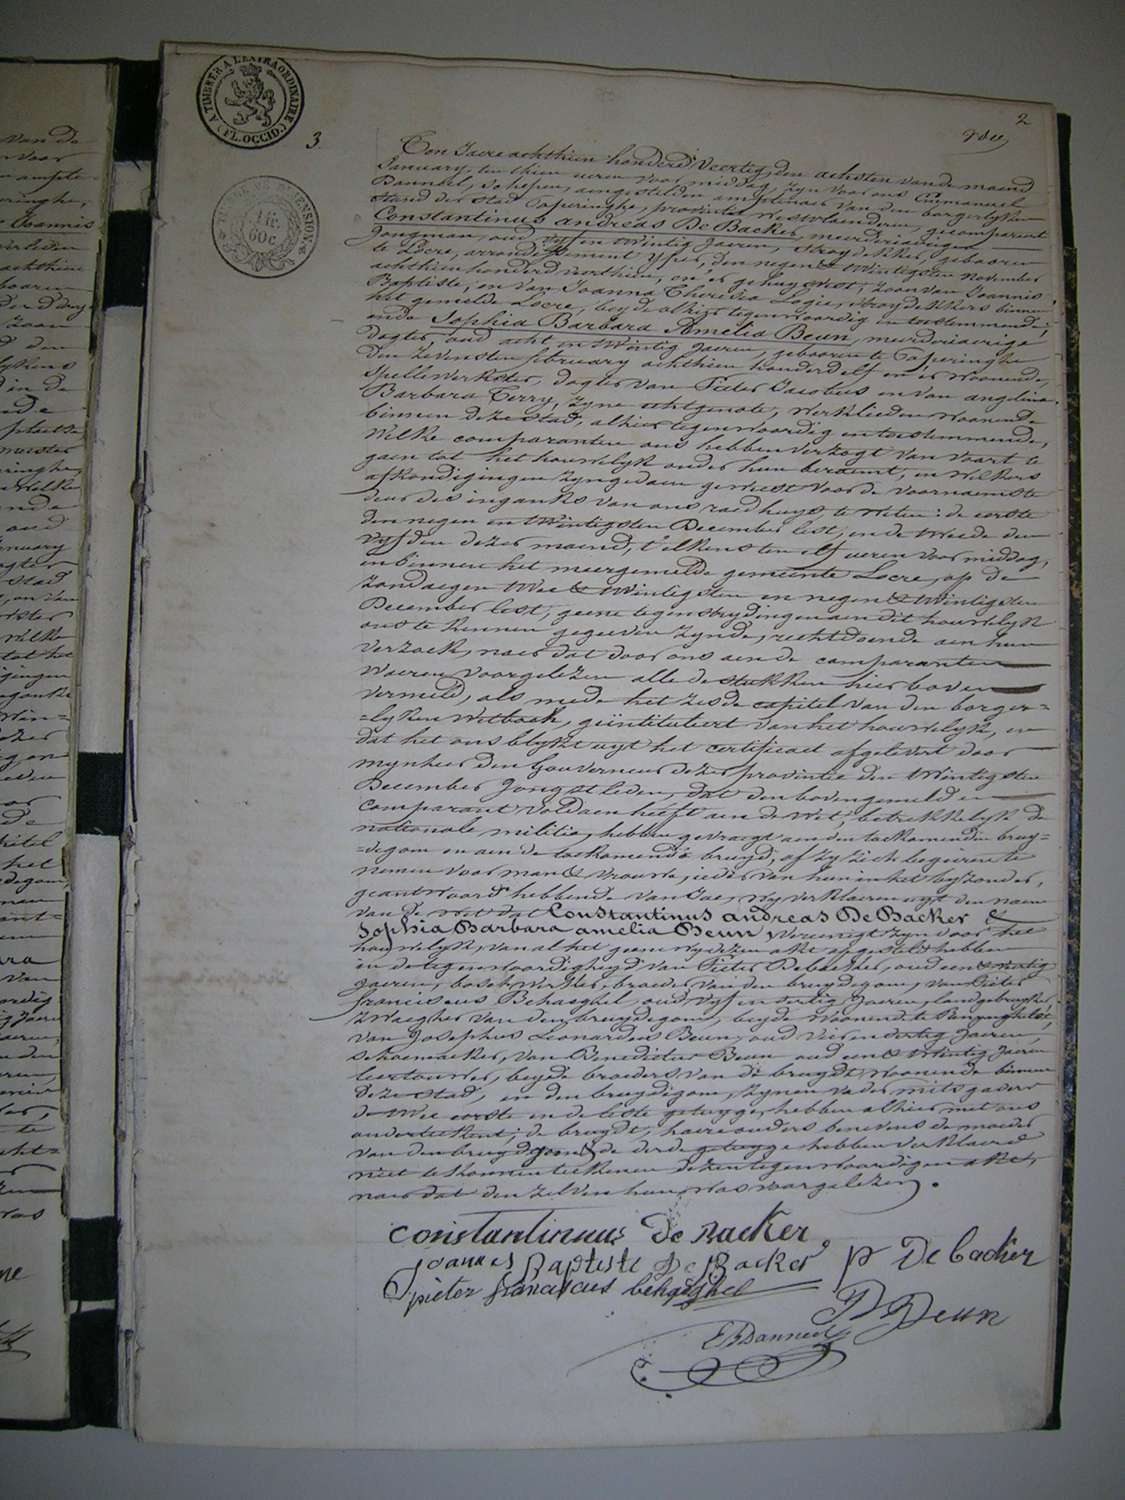 A TIMBRER A L'EXTRAORDINAIRE
(FL. OCCID.)
2
3
Ten Jaere achthien honderd Veertig, den achsten van de maend
January, ten thien ueren voor middag, zyn voor ons Emmanuel
Banneel, Schepen, aengestelden amptenaer van den borgerlyken
stand der stad Poperinghe, provintie Westvlaenderen, gecompareert
Constantinus andreas De Backer, meerderjaerigen
Jongman, oud vyf en twintig Jaeren, strooydekker, gebooren
te Locre, arrondissement Yper, den negen & twintigsten november
achthien honderd veerthien, en er gehuysvest, zoon van Joannis
Baptiste, en van Joanna Theresia Logie, strooydekkers binnen
het gemelde Locre, beyde alhier tegenwoordig en toestemmende;
ende Sophia Barbara Amelia Beun, meerderjaerige
dogter, oud acht en twintig Jaeren, gebooren te Poperinghe
den zevensten february achthien honderd elf en er woonende,
spellewerkster, dogter van Pieter Jacobus en van angelina
Barbara Terry, zyne echtgenote, werklieden woonende
binnen deze stad, alhier tegenwoordig en toestemmende,
Welke comparanten ons hebben verzogt van voort te
gaen tot het houwelyk onder hun beraemt, en welkers
afkondigingen zyn gedaen geweest voor de voornaemste
deur der ingank van ons raedhuys, te weten: de eerste
den negen en twintigsten December lest, en de tweede den
vyfden dezer maend, t'elkens ten elf ueren voor middag,
en binnen het meergemelde gemeente Locre, op de
zondaegen twee & twintigsten en negen & twintigsten
December lest; geene tegenstrydingen aen dit houwelyk
ons te kennen gegeeven zynde, rechtdoende aen hun
verzoek, naer dat door ons aen de comparanten
waeren voorgelezen alle de stukken hier boven
vermeld, als mede het zesde capitel van den borger=
=lyken Wetboek, geïntituleert Van het houwelyk, en
dat het ons blykt uyt het certificaet afgelevert door
mynheer den Gouverneur dezer provintie den twintigsten
December Jongstleden, dat den bovengemelden
comparant voldaen heeft aen de Wet, betrekkelyk de
nationale militie, hebben gevraegt aen den toekomenden bruy=
=degom en aen de toekomende bruyd, of zy zich begeeren te
nemen voor man & vrouwe, ieder van hun in het byzonder,
geantwoord hebbende van Jae, wy verklaeren uyt den naem
van de wet dat Constantinus andreas De Backer &
Sophia Barbara amelia Beun, vereenigt zyn voor het
houwelyk, van al het geene wy dezen akt opgesteld hebben
in de tegenwoordigheyd van Pieter Debacker, oud een & dertig
jaeren, boschwerker, broeder van den bruydegom, van Pieter
franciscus Behaeghel, oud vyf en dertig Jaeren, landgebruyker,
zwaegher van den bruydegom, beyde woonende te Reninghelst,
van Josephus Leonardus Beun, oud vier en dertig Jaeren,
schoenmaeker, van Benedictus Beun oud een & twintig Jaeren
leertouwer, beyde broeders van de bruydt, woonende binnen
deze stad, en den bruydegom, zynen vader mitsgaders
de twee eerste en de leste getuyge, hebben alhier met ons
onderteekent; de bruydt, haere ouders benevens de moeder
van den bruydegom & de derde getuyge hebben verklaerd
niet te konnen teekenen dezen tegenwoordigen akt,
naer dat den zelven hun was voorgelezen.
constantinus De Backer
joannes Baptiste De Backer p De backer
pieter franciscus behaeghel
B Beun
E Banneel